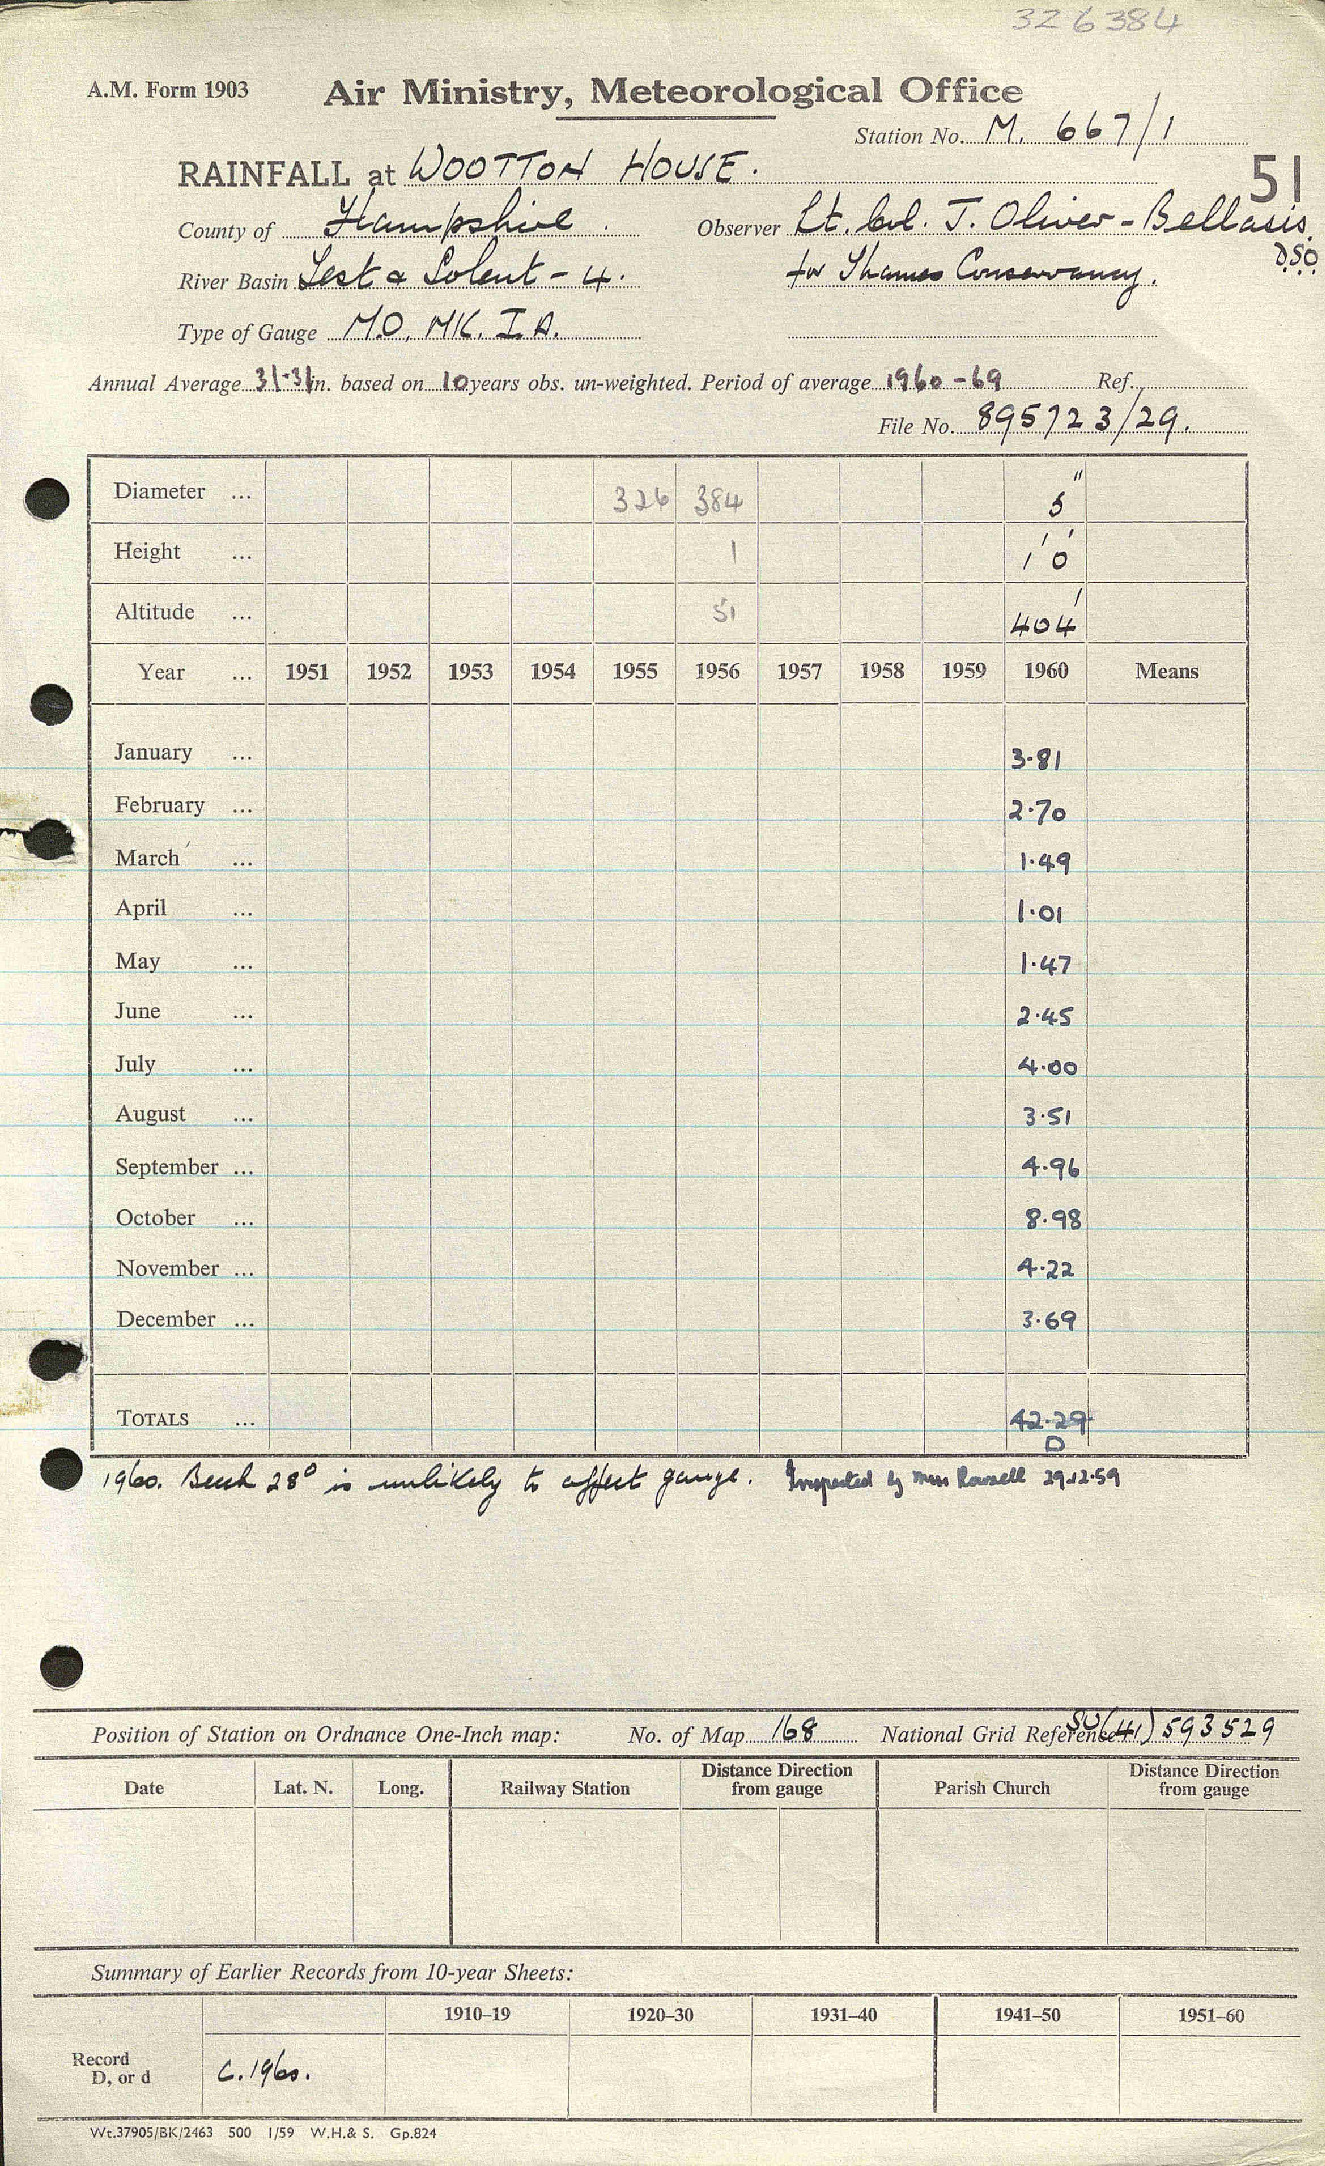 326384
A.M. Form 1903 Air Ministry, Meteorological Office
Station No. M. 667/1
RAINFALL at WOOTTON HOUSE. 51
County of Hampshire. Observer Lt. Col. J. Oliver-Bellasis. D.S.O
River Basin Test & Solent - 4. for Thames Conservancy.
Type of Gauge M.O. MK. I A.
Annual Average 31.31 in. based on 10 years obs. un-weighted. Period of average 1960-69 Ref.
File No. 895723/29.
Diameter ... 326 384 5"
Height ... 1 1' 0'
Altitude ... 51 404'
Year ... 1951 1952 1953 1954 1955 1956 1957 1958 1959 1960 Means
January ... 3.81
February ... 2.70
March ... 1.49
April ... 1.01
May ... 1.47
June ... 2.45
July ... 4.00
August ... 3.51
September ... 4.96
October ... 8.98
November ... 4.22
December ... 3.69
TOTALS ... 42.29
D
1960. Beech 28° is unlikely to affect gauge. Inspected by Miss 29.12.59
Position of Station on Ordnance One-Inch map: No. of Map 168 National Grid Reference SU(41) 593529
Date Lat. N. Long. Railway Station Distance Direction from gauge Parish Church Distance Direction from gauge
Summary of Earlier Records from 10-year Sheets:
1910–19 1920–30 1931–40 1941–50 1951–60
Record
D, or d C.1960.
Wt.37905/BK/2463 500 1/59 W.H.& S. Gp.824